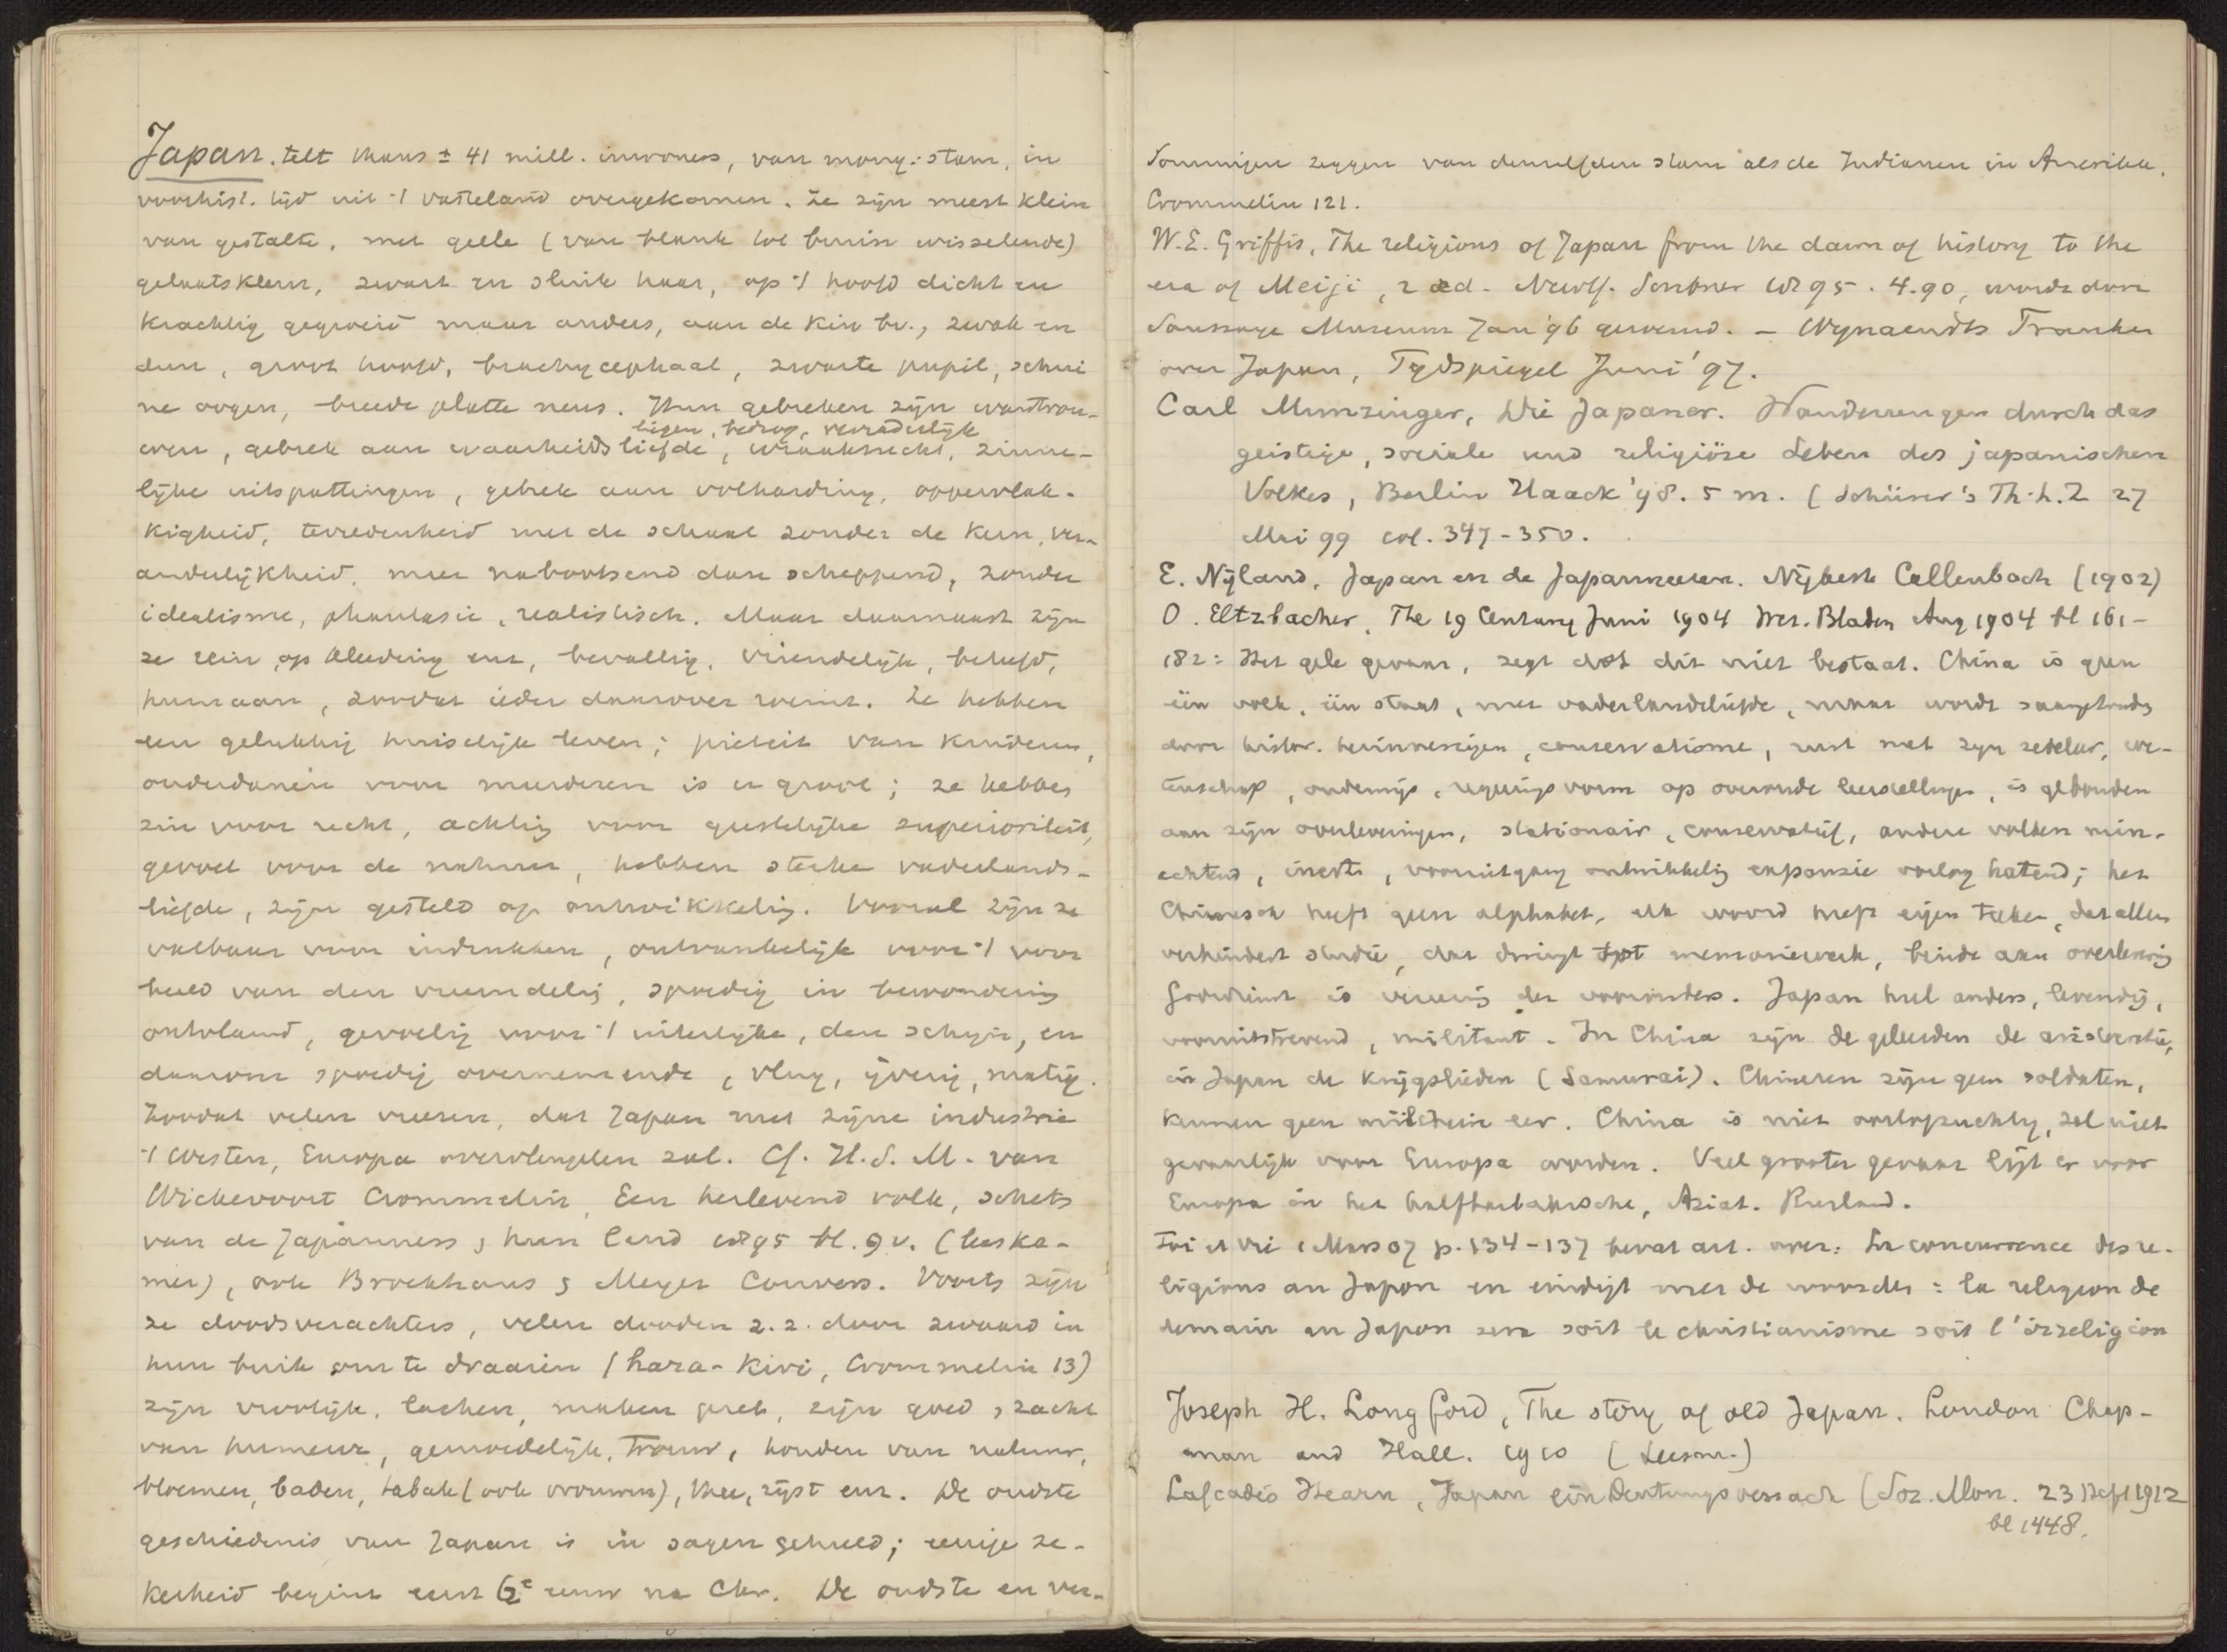 Japan. telt thans ± 41 mill. inwoners, van mong: stam, in
voorhist. tijd uit 't vasteland overgekomen. Ze zijn meest klein
van gestalte, met geele (van blank tot bruin wisselende)
gelaatskleur, zwart en sluik haar, op 't hoofd dicht en
krachtig gegroeid maar anders, aan de kin bv., zwak en
dun, groot hoofd, brachycephaal, zwarte pupil, schui
ne oogen, breede platte neus. Hun gebreken zijn wantrou-
liegen, bedrog, verraderlijk
wen, gebrek aan waarheidsliefde, wraakzucht, zinne-
lijke uitspattingen, gebrek aan volharding, oppervlak-
kigheid, tevredenheid met de schaal zonder de kern, ver-
anderlijkheid, meer nabootsend dan scheppend, zonder
idealisme, phantasie, realistisch. Maar daarnaast zijn
ze rein op kleeding enz, bevallig, vriendelijk, beleefd,
humaan, zoodat ieder daarover roemt. Ze hebben
een gelukkig huiselijk leven; pieteit van kinderen,
onderdanen voor meerderen is er groot; ze hebben
zin voor recht, achting voor geestelijke superioriteit,
gevoel voor de natuur, hebben sterke vaderlands-
liefde, zijn gesteld op ontwikkeling. Vooral zijn ze
vatbaar voor indrukken, ontvankelijk voor 't voor
beeld van den vreemdeling, spoedig in bewondering
ontvlamd, gevoelig voor 't uiterlijke, den schijn, en
daarom spoedig overnemende, vlug, ijverig, matig.
Zoodat velen vreezen, dat Japan met zijne industrie
't Westen, Europa overvleugelen zal. Cf. H.S.M. van
Wickevoort Crommelin, Een herlevend volk, schets
van de Japanners & hun land 1895 bl. 9 v. (leeska-
mer), ook Brockhaus & Meyer Convers. Voorts zijn
ze doodsverachters, velen dooden z.z. door zwaard in
hun buik om te draaien (hara-kiri, Crommelin 13)
zijn vroolijk, lachen, maken pret, zijn goed & zacht
van humeur, gemoedelijk, trouw, houden van natuur,
bloemen, baden, tabak (ook vrouwen), thee, rijst enz. De oudste
geschiedenis van Japan is in sagen gehuld; eenige ze-
kerheid begint eerst 6e eeuw na Chr. De oudste en ver-
Sommigen zeggen van denzelfden stam als de Indianen in Amerika.
Crommelin 121.
W.E. Griffis, The religions of Japan from the dawn of history to the
era of Meiji, 2 ed. Scribner 1895. 4.90, wordt door
Saussaye Museum Jan '96 geroemd. – Wijnaendts Francken
over Japan, Tijdspiegel Juni '97.
Carl Munzinger, Die Japaner. Wanderungen durch das
geistige, sociale und religiöse Leben des japanischen
Volkes, Berlin Haack '98. 5 m. (Schürer's Th.L.Z 27
Mai 99 col. 347-350.
E. Nijland, Japan en de Japanneezen. Nijkerk Callenbach (1902)
O. Eltzbacher, The 19 Century Juni 1904 Wet. Bladen Aug 1904 bl 161-
182: Het gele gevaar, zegt dat dit niet bestaat. China is geen
één volk, één staat, met vaderlandsliefde, maar wordt
door histor. herinneringen, conservatisme, rust met zijn zedeleer, we-
tenschap, onderwijs, regeringsvorm op oeroude leerstellingen, is gebonden
aan zijn overleveringen, stationair, conservatief, andere volken min-
achtend, inert, vooruitgang ontwikkeling expansie oorlog hatend; het
Chineesch heeft geen alphabet, elk woord heeft eigen teeken, dat alles
verhindert studie, dat dwingt tot memoriewerk, bindt aan overlevering
Godsdienst is vereering der voorouders. Japan heel anders, levendig,
vooruitstrevend, militant. In China zijn de geleerden de aristocratie,
in Japan de krijgslieden (Samurai). Chineezen zijn geen soldaten,
kennen geen militaire eer. China is niet oorlogzuchtig, zal niet
gevaarlijk voor Europa worden. Veel grooter gevaar ligt er voor
Europa in het halfbarbaarsche, Aziat. Rusland.
Foi et Vie 1 Mars 07 p. 134-137 bevat art. over: La concurrence des re-
ligions au Japon en eindigt met de woorden: la religion de
demain au Japon sera soit le christianisme soit l'irreligion
Joseph H. Longford, The story of old Japan. London Chap-
man and Hall. 1910 (Leesm.)
Lafcadio Hearn, Japan ein Deutungsversuch (Soz. Mon. 23 Heft 1912
bl 1448.